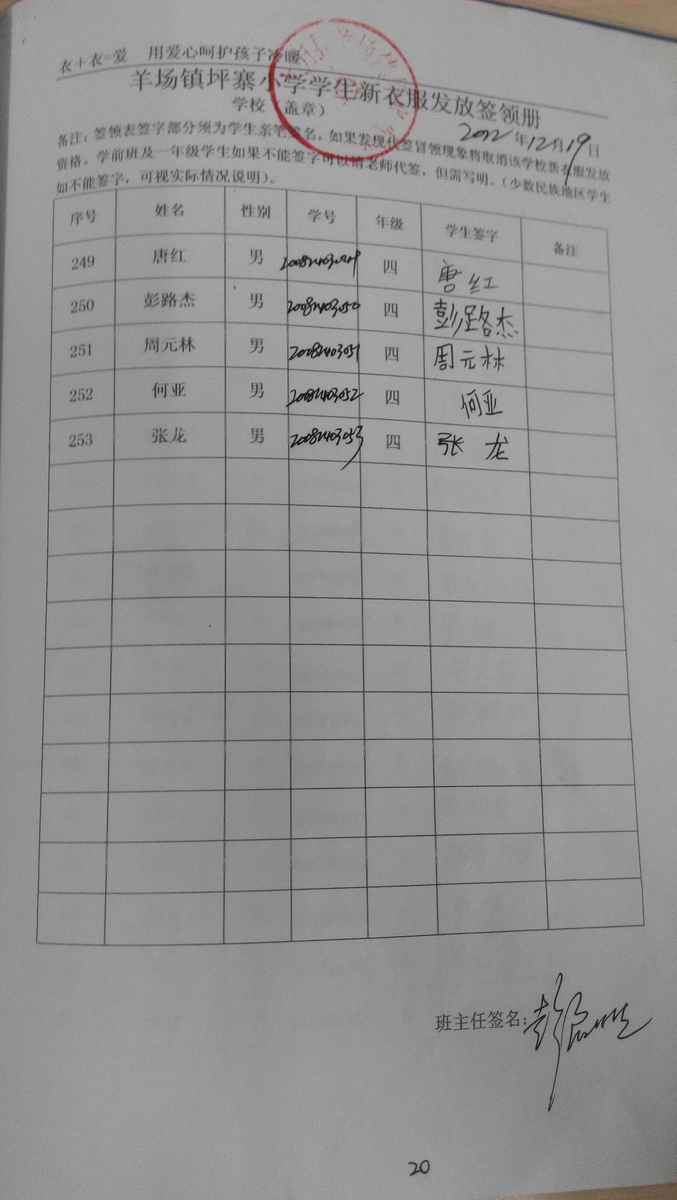 衣+衣=爱 用爱心呵护孩子冷暖
羊场镇坪寨小学学生新衣服发放签领册
学校(盖章) 2012年12月19日
备注:签领表签字部分须为学生亲笔签名,如果发现代签冒领现象将取消该学校新衣服发放
资格。学前班及一年级学生如果不能签字可以请老师代签,但需写明。(少数民族地区学生
如不能签字,可视实际情况说明)。
序号 姓名 性别 学号 年级 学生签字 备注
249 唐红 男 四 唐红
250 彭路杰 男 四 彭路杰
251 周元林 男 四 周元林
252 何亚 男 四 何亚
253 张龙 男 四 张龙
班主任签名:
20